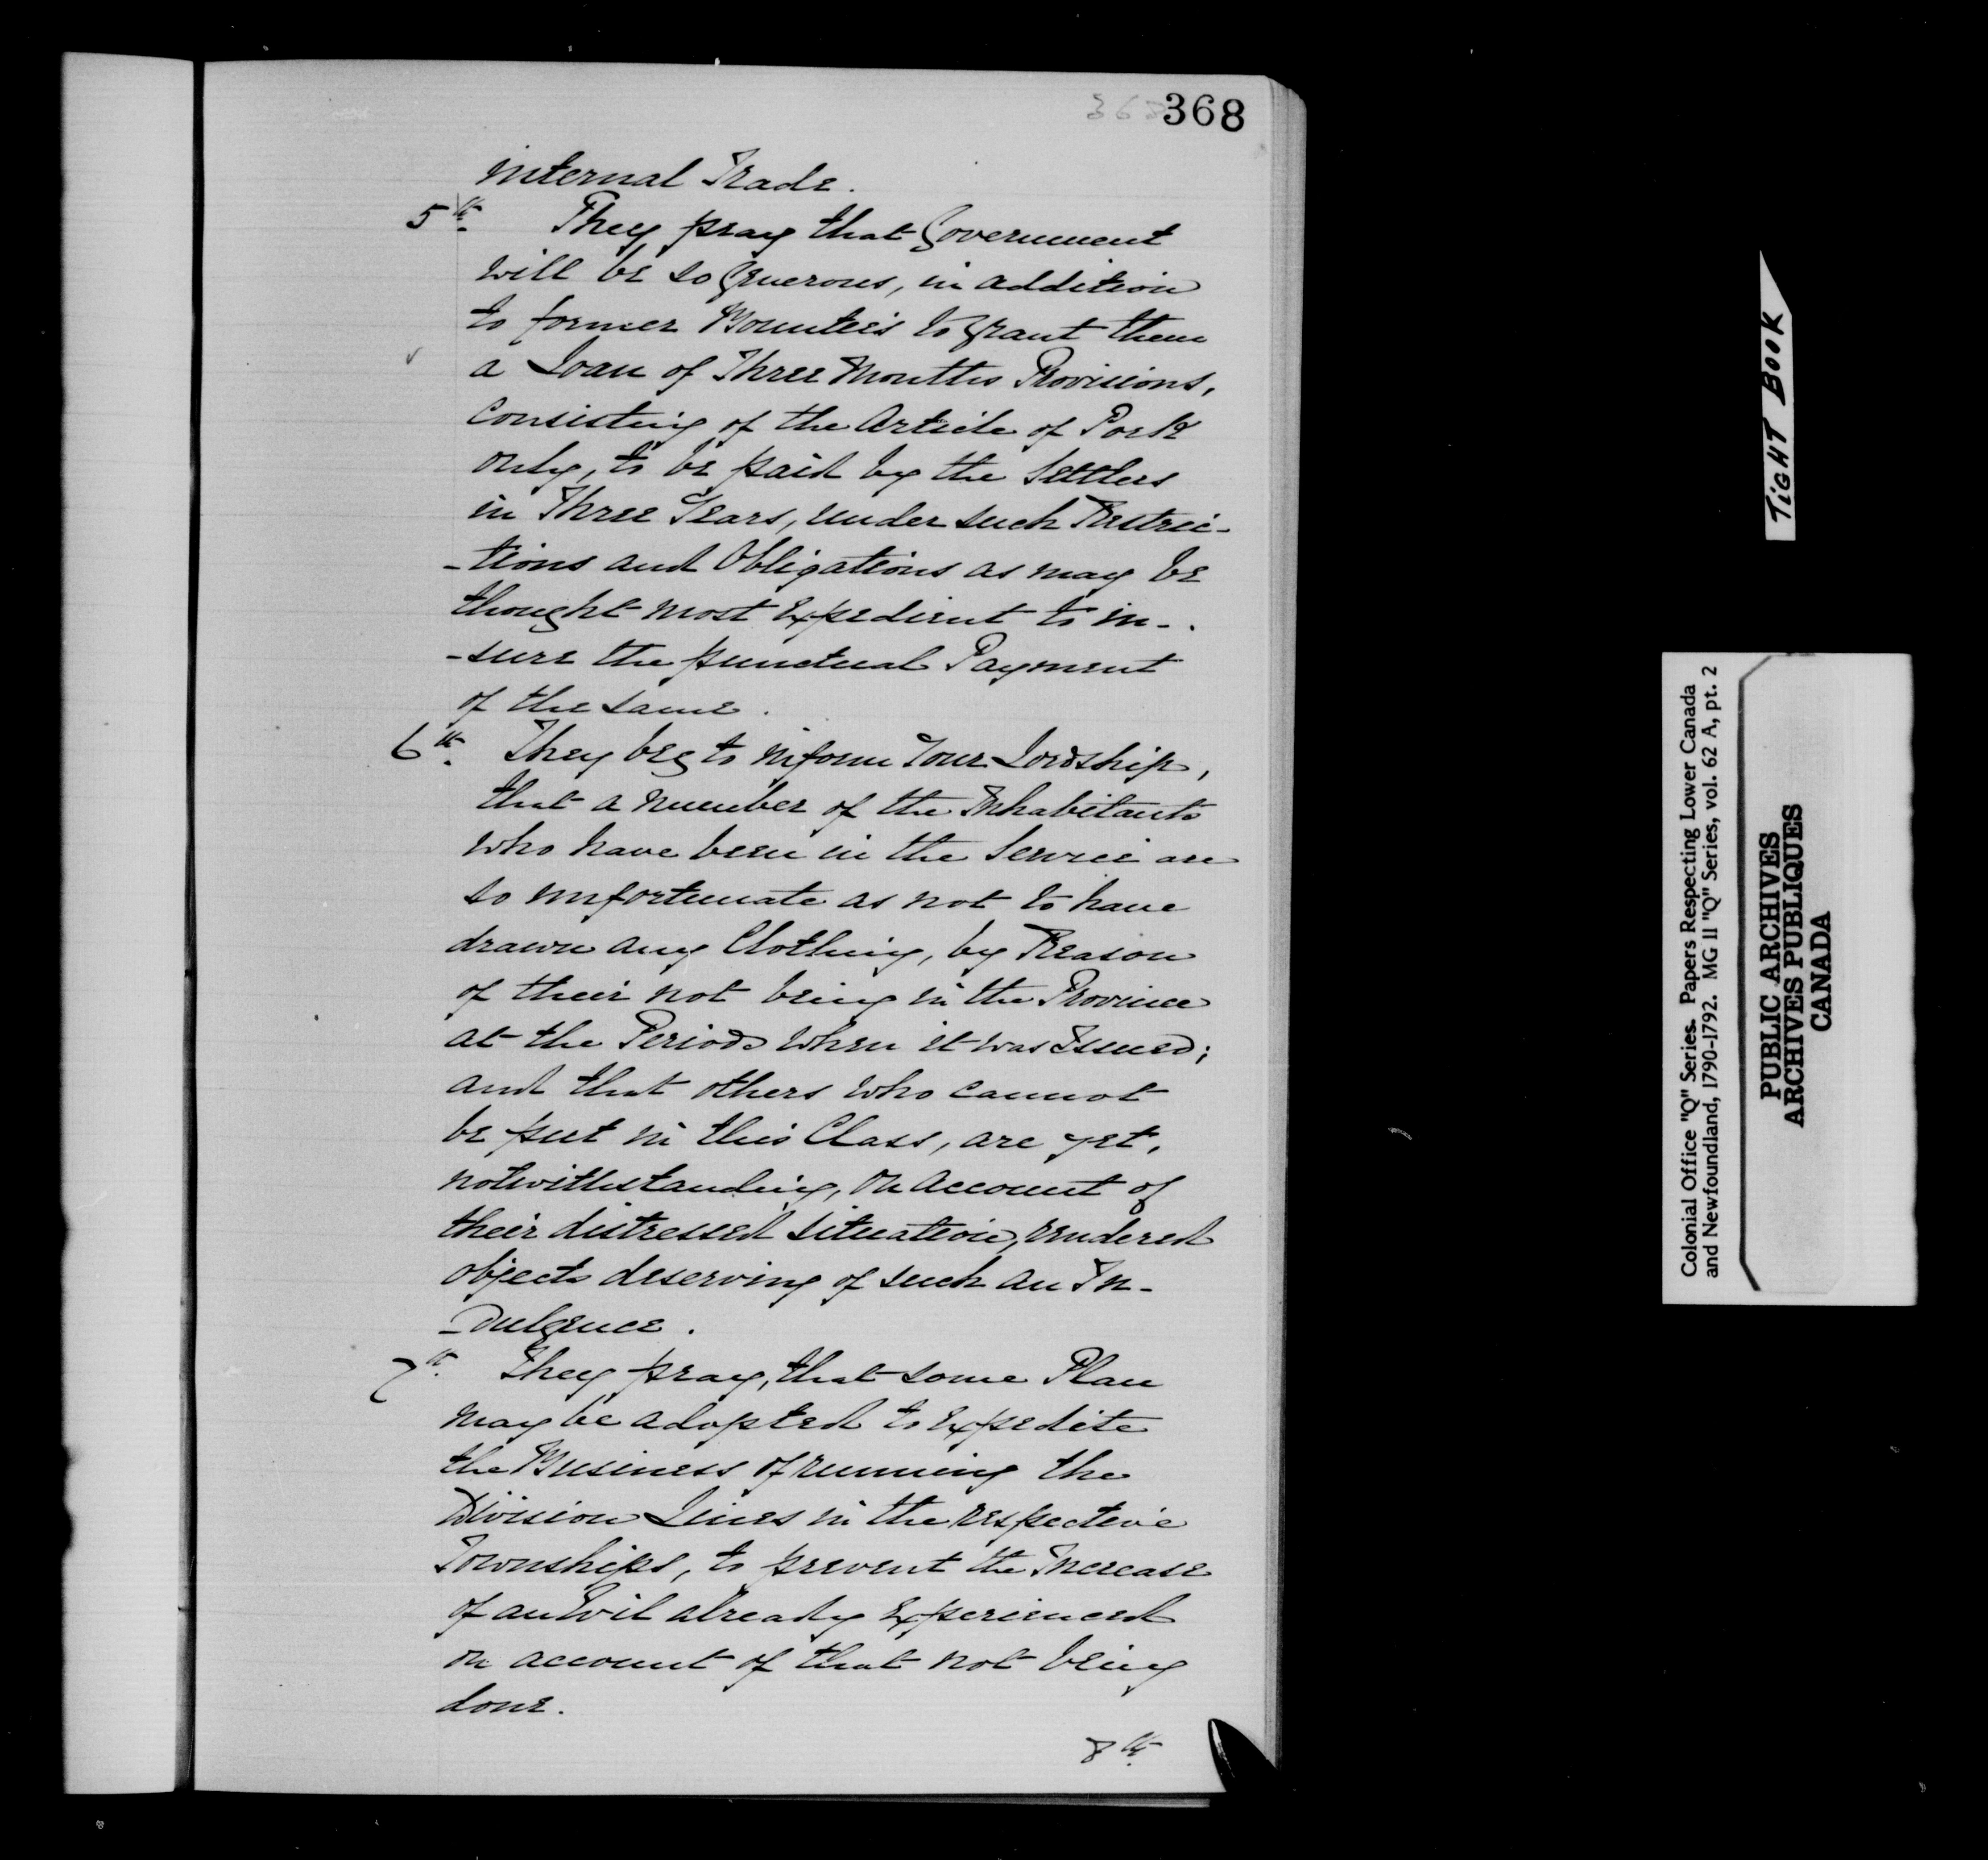 368 368
internal Trade.
5th. They pray that Government
will be so Generous, in addition
to former Bounties to Grant them
a Loan of Three Months Provisions,
consisting of the Article of Pork
only, to be paid by the Settlers
in Three Years, under such Restric-
-tions and Obligations as may be
thought most Expedient to in-
-sure the punctual Payment
of the same.
6th. They beg to inform Your Lordship,
that a number of the Inhabitants
who have been in the Service are
so unfortunate as not to have
drawn any Clothing, by Reason
of their not being in the Province
at the Period when it was Issued;
and that others who cannot
be put in this Class, are yet,
notwithstanding, on account of
their distressed situation, rendered
objects deserving of such an In-
-dulgence.
7th. They pray, that some Plan
may be adopted to Expedite
the Business of running the
Division Lines in the respective
Townships, to prevent the Increase
of an Evil already Experienced
on account of that not being
done.
8th.
TIGHT BOOK
Colonial Office "Q" Series. Papers Respecting Lower Canada
and Newfoundland, 1790-1792. MG 11 "Q" Series, vol. 62 A, pt. 2
PUBLIC ARCHIVES
ARCHIVES PUBLIQUES
CANADA